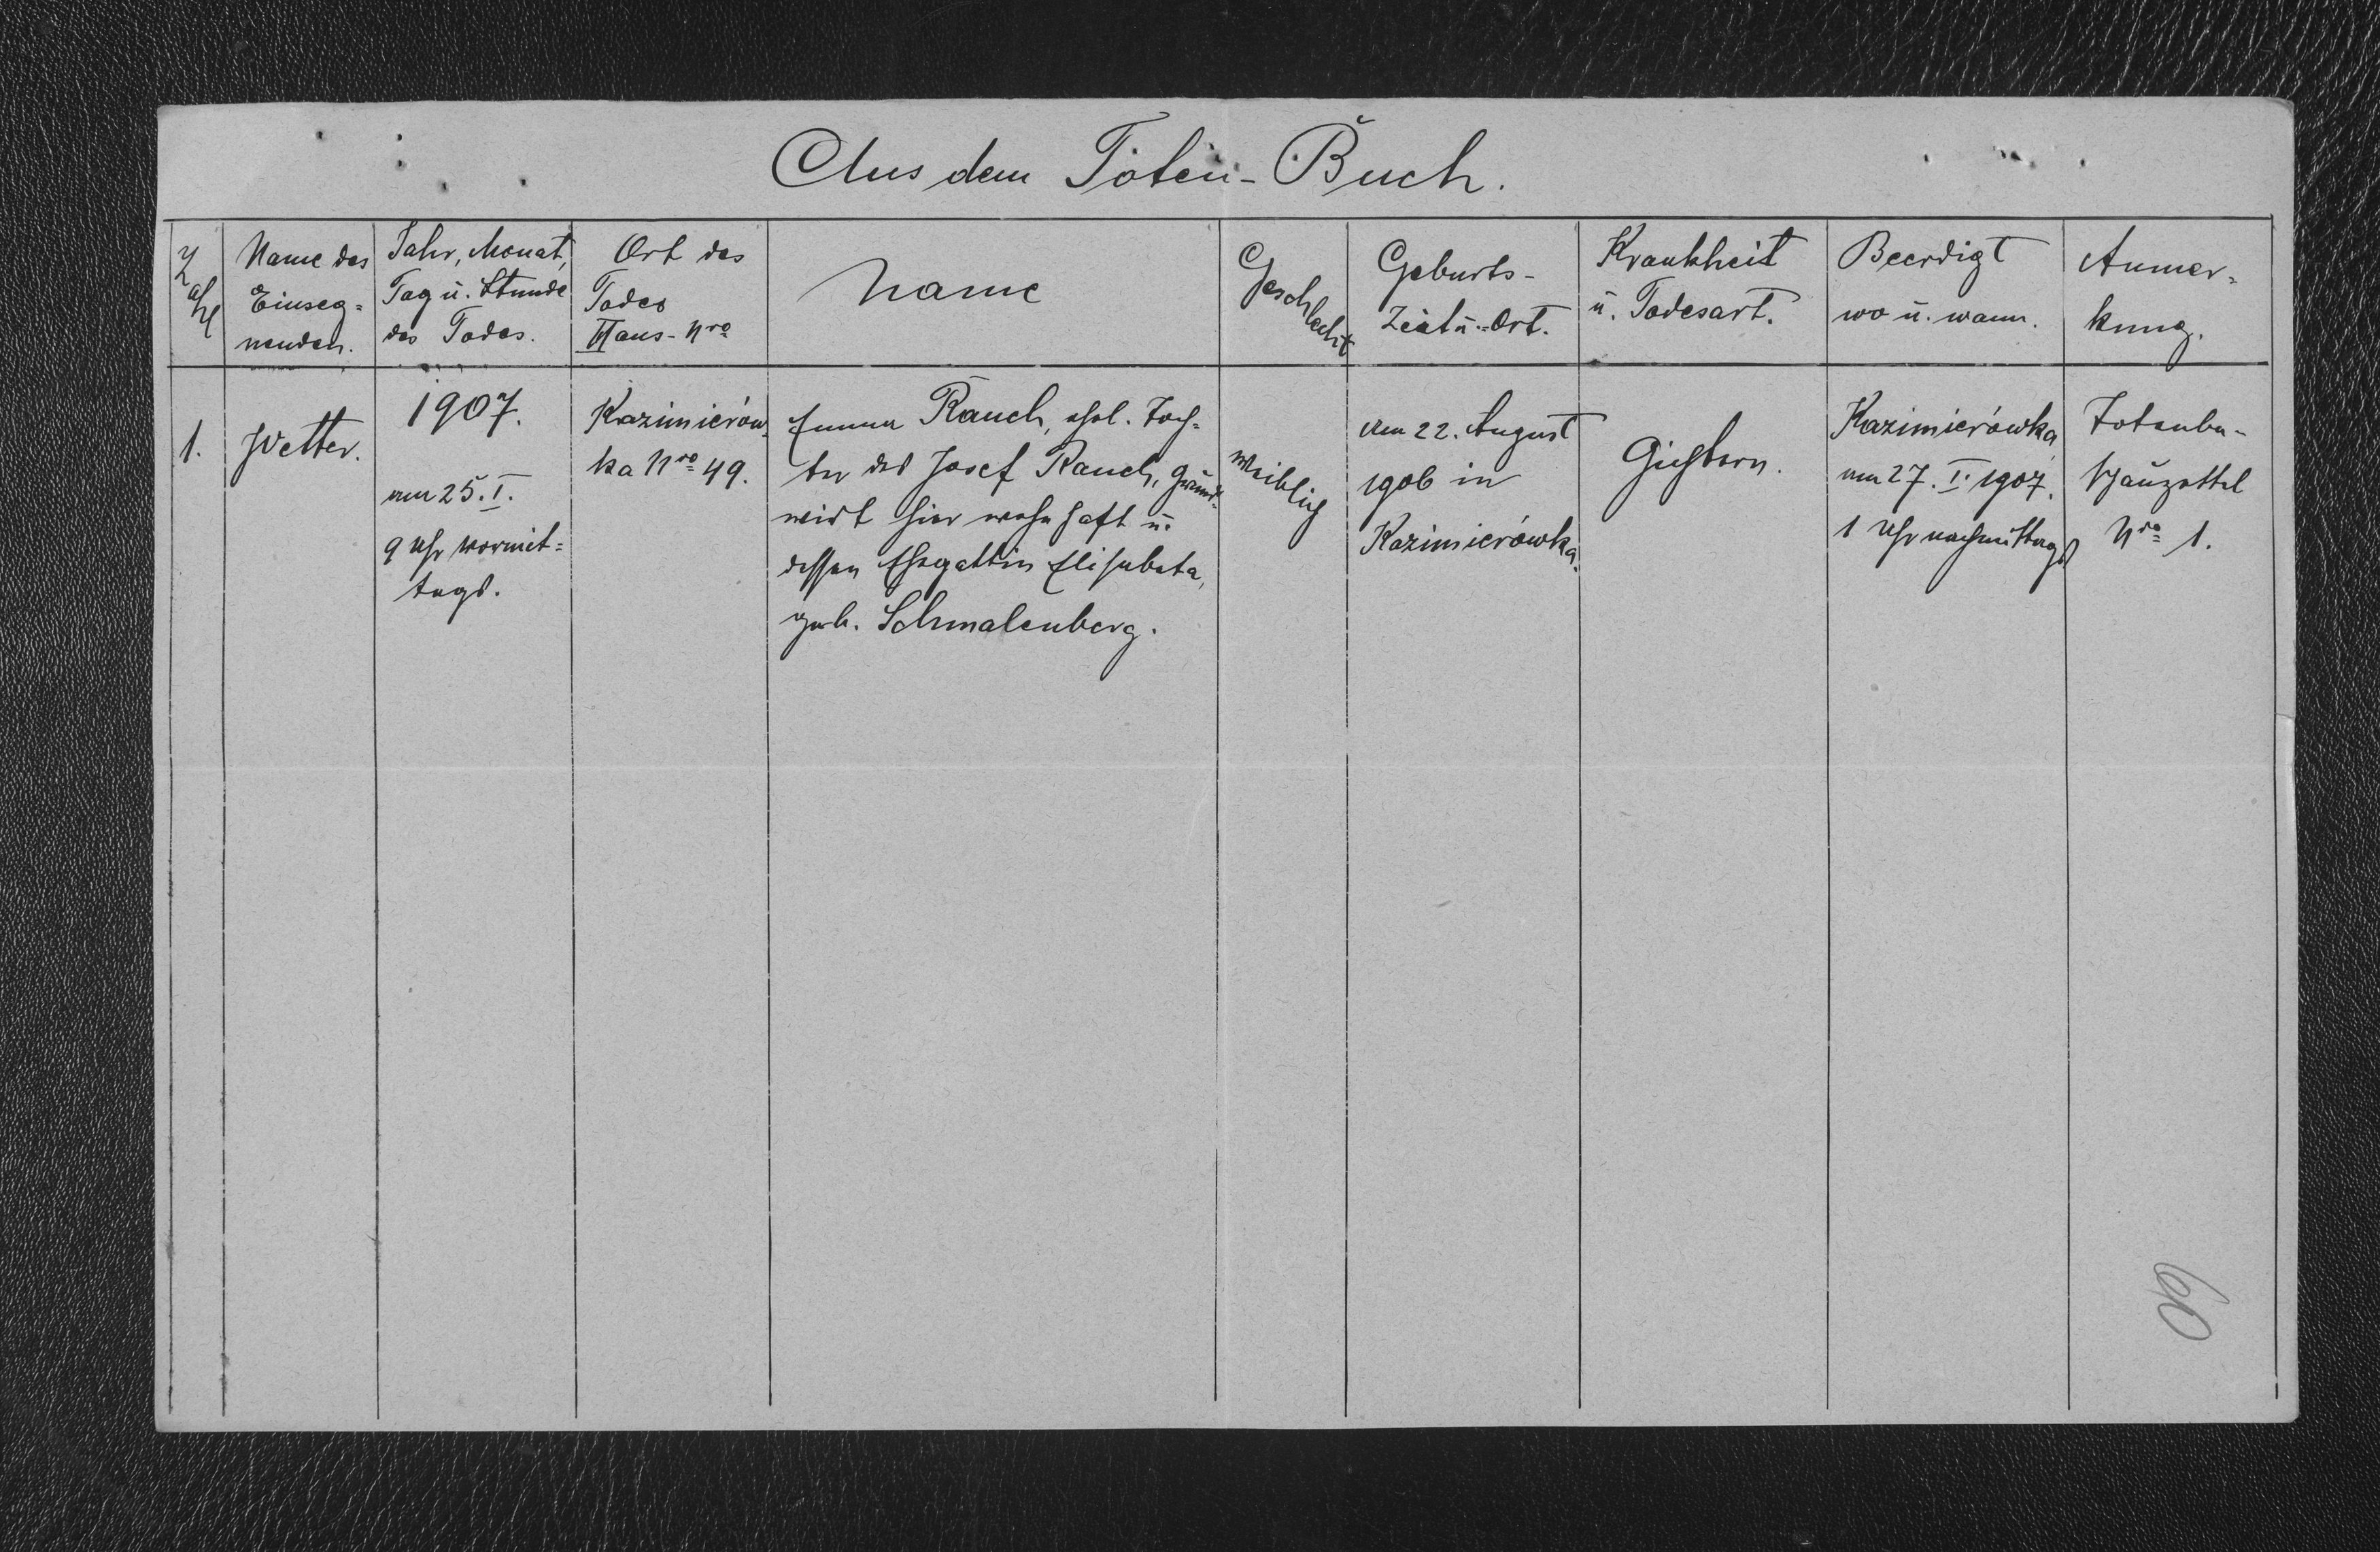 Aus dem Toten-Buch.
Zahl
Name des
Einseg=
nenden.
Jahr, Monat,
Tag u. Stunde
des Todes.
Ort des
Todes
Haus-Nro
Name
Geschlecht
Geburts-
Zeit u.-Ort.
Krankheit
u. Todesart.
Beerdigt
wo u. wann.
Anmer-
kung.
1.
Wetter.
1907.
am 25. I.
9 Uhr vormit=
tags.
Kazimierów-
ka Nro 49.
Emma Rauch, ehel. Toch=
ter des Josef Rauch, Grund-
wirt hier wohnhaft u.
dessen Ehegattin Elisabeta,
geb. Schmalenberg.
weiblich
am 22. August
1906 in
Kazimierówka.
Gichtern.
Kazimierówka
am 27. I. 1907.
1 Uhr nachmittags
Totenbe-
schauzettel
Nro 1.
60